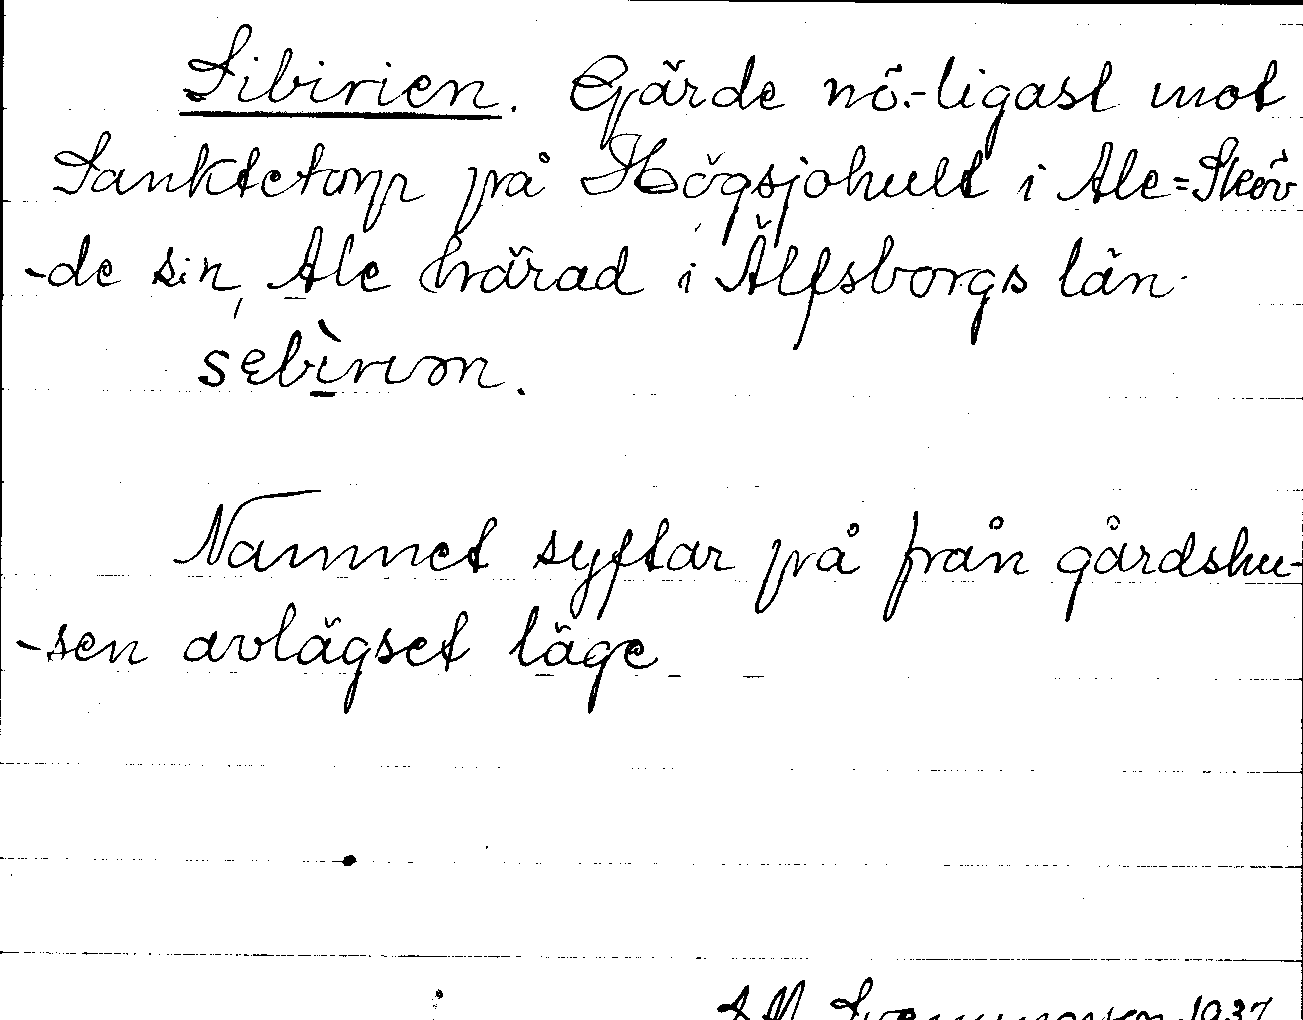 Sibirien. Gärde nö.-ligast mot
Sanktetorp på Högsjohult i Ale=Sköv
-de sn, Ale härad i Älfsborgs län.
Namnet syftar på från gårdshu-
-sen avlägset läge
1937